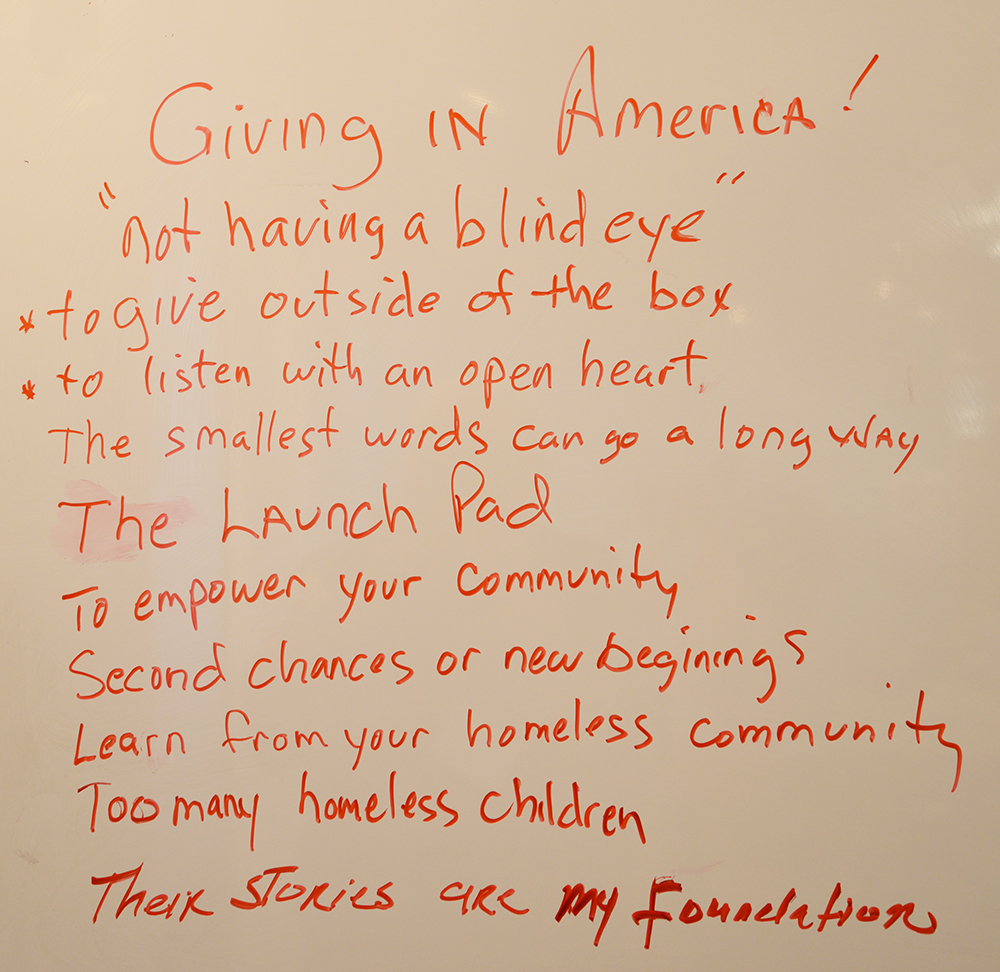 Giving IN AmericA!
"not having a blind eye"
* to give outside of the box
* to listen with an open heart.
The smallest words can go a long way
The LAunch Pad
To empower your community
Second chances or new beginings
Learn from your homeless community
Too many homeless children
Their stories are my foundation